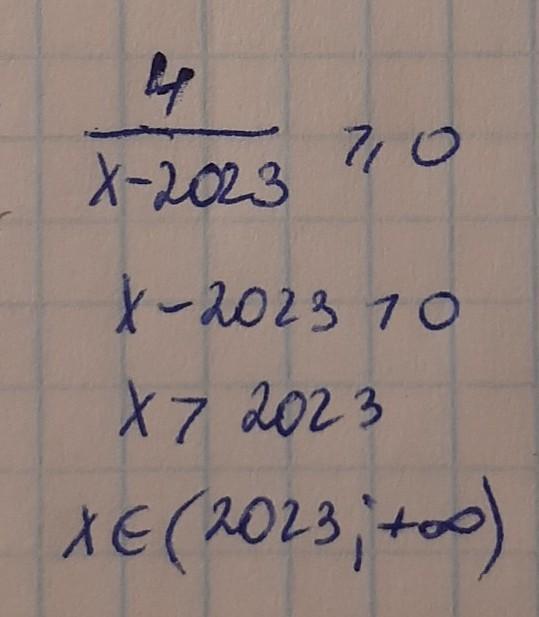 4
x-2023 ⩾ 0
x-2023 > 0
x > 2023
x∈(2023;+∞)